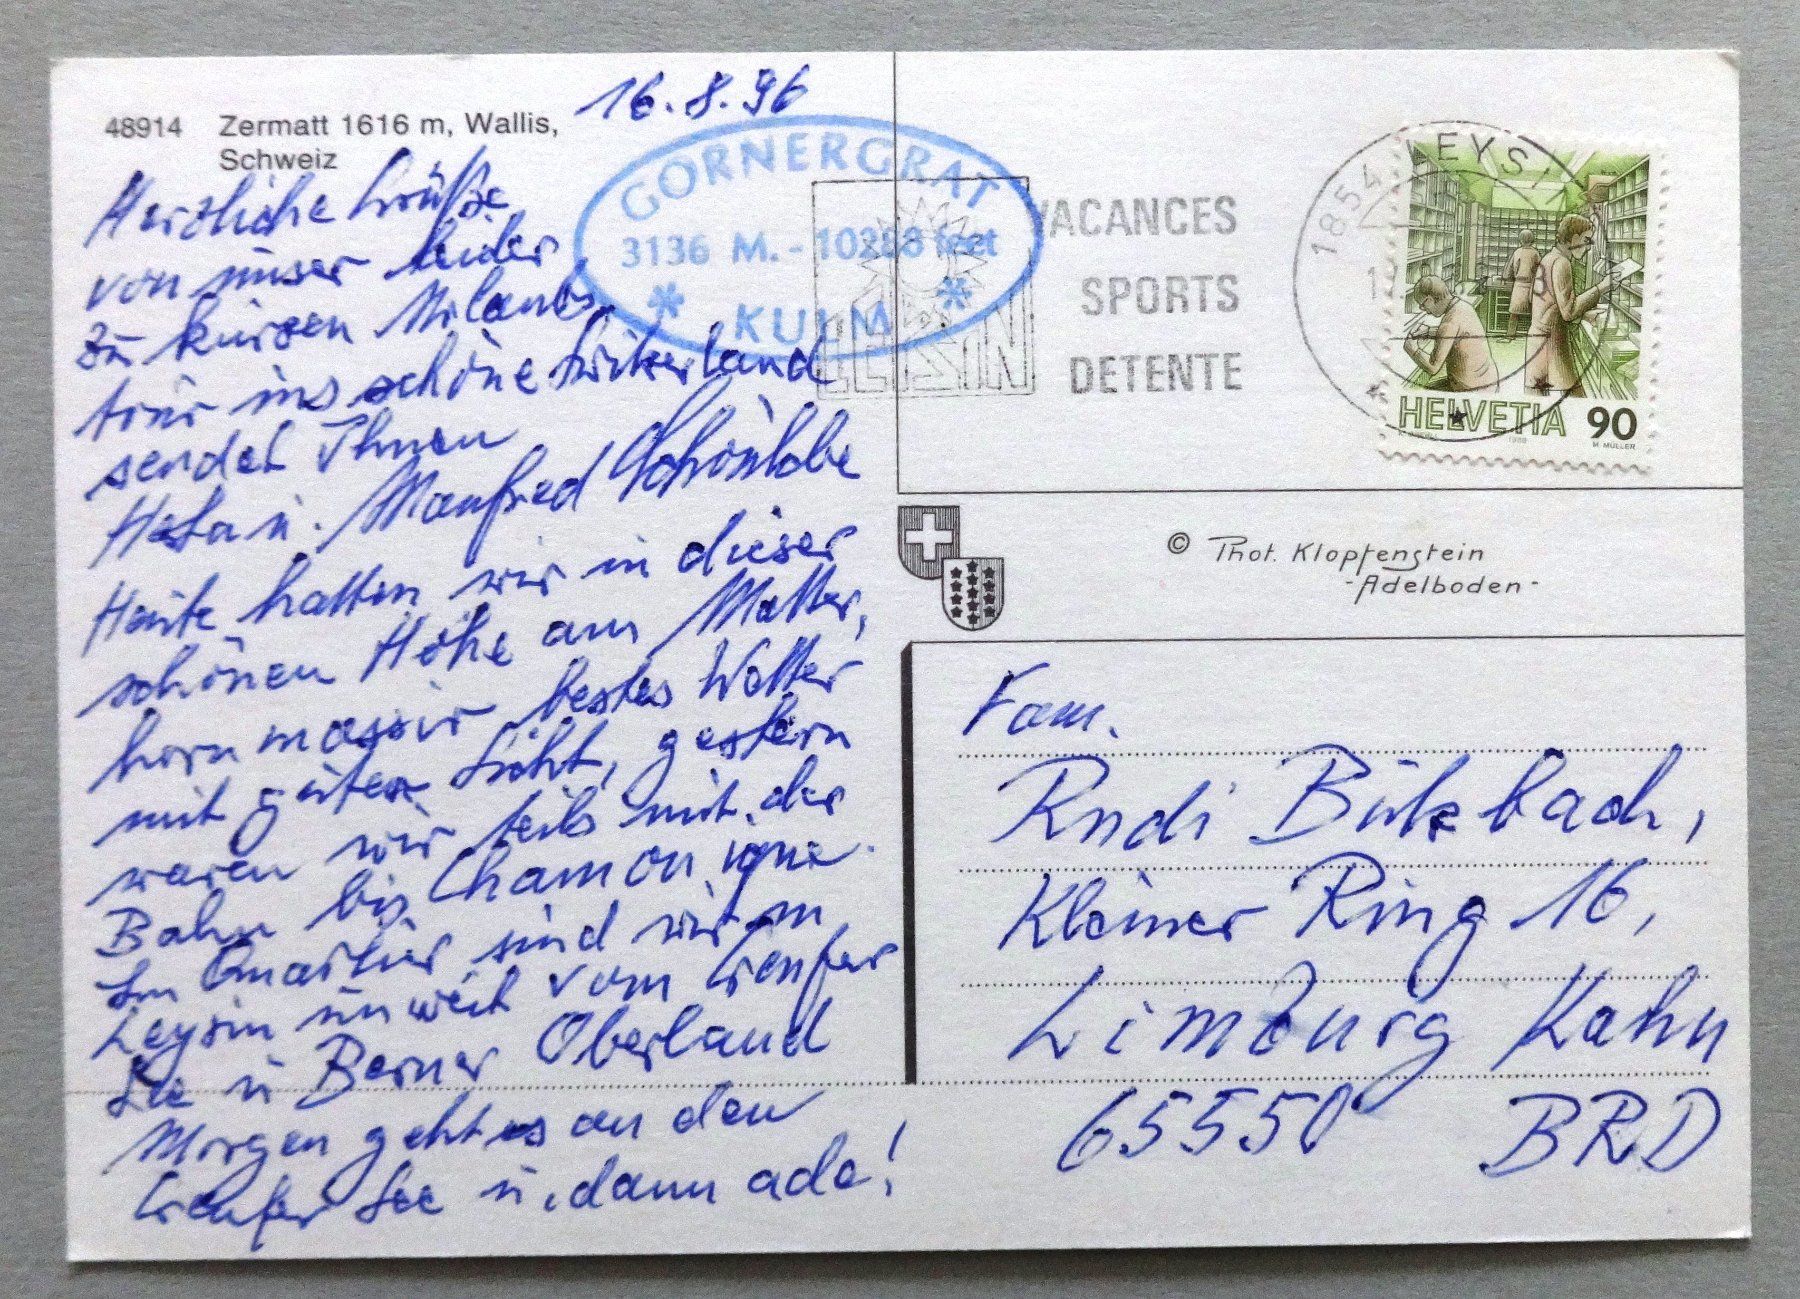 48914 Zermatt 1616 m, Wallis,
Schweiz
16.8.96
Herzliche Grüße
von unser leider
zu kurzen Urlaubs
tour ins schöne
sendet Ihnen
u. Manfred
Heute hatten wir in dieser
schönen Höhe am Matter,
horn massiv bestes Wetter
mit guter Sicht, gestern
waren wir teils mit der
Bahn bis Chamonigne.
Im Quartier sind wir in
Leysin unweit vom Genfer
See u Berner Oberland
Morgen geht es an den
Genfer See u. dann ade!
GORNERGRAT
3136 M. - 10288 feet
* KULM *
LEYSIN
VACANCES
SPORTS
DETENTE
1854 LEYSIN
HELVETIA 90
M. MÜLLER
© Phot. Klopfenstein
-Adelboden-
Fam.
Rudi
Kleiner Ring 16,
Limburg Lahn
65550 BRD